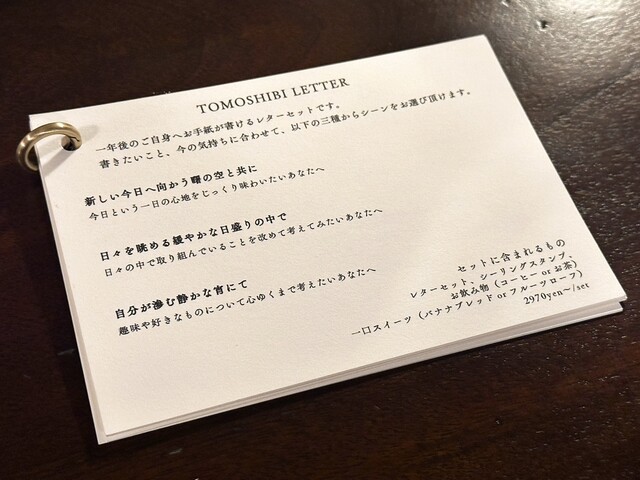 TOMOSHIBI LETTER
一年後のご自身へお手紙が書けるレターセットです。
書きたいこと、今の気持ちに合わせて、以下の三種からシーンをお選び頂けます。
新しい今日へ向かう曙の空と共に
今日という一日の心地をじっくり味わいたいあなたへ
日々を眺める緩やかな日盛りの中で
日々の中で取り組んでいることを改めて考えてみたいあなたへ
自分が滲む静かな宵にて
趣味や好きなものについて心ゆくまで考えたいあなたへ
セットに含まれるもの
レターセット、シーリングスタンプ、
お飲み物（コーヒー or お茶）
一口スイーツ（バナナブレッド or フルーツローフ）
2970yen〜/set